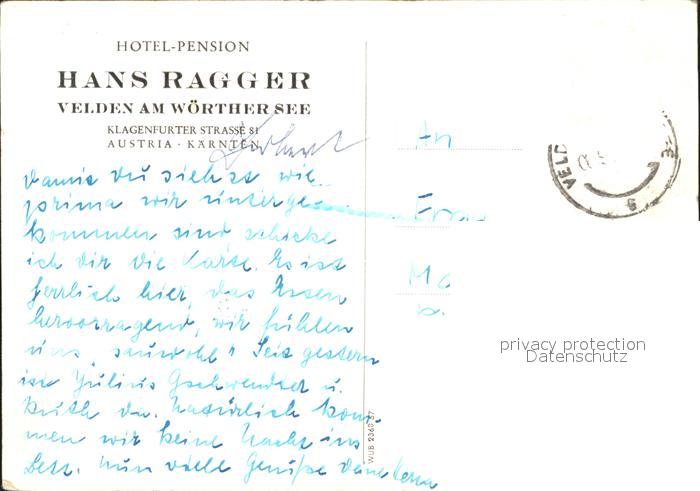 HOTEL-PENSION
HANS RAGGER
VELDEN AM WÖRTHER SEE
KLAGENFURTER STRASSE 81
AUSTRIA · KÄRNTEN
Herbert
damit du siehst wie
prima wir unterge-
kommen sind schicke
ich dir die Karte. Es ist
herrlich hier, das Essen
hervorragend, wir fühlen
uns „sauwohl" Seit gestern
ist Julius Gschwendtner u.
Ruth da. Natürlich kom-
men wir keine Nacht ins
Bett. Nun viele Grüße deine
An
Frau
Ma
VELD
WUB 2360 57
privacy protection
Datenschutz